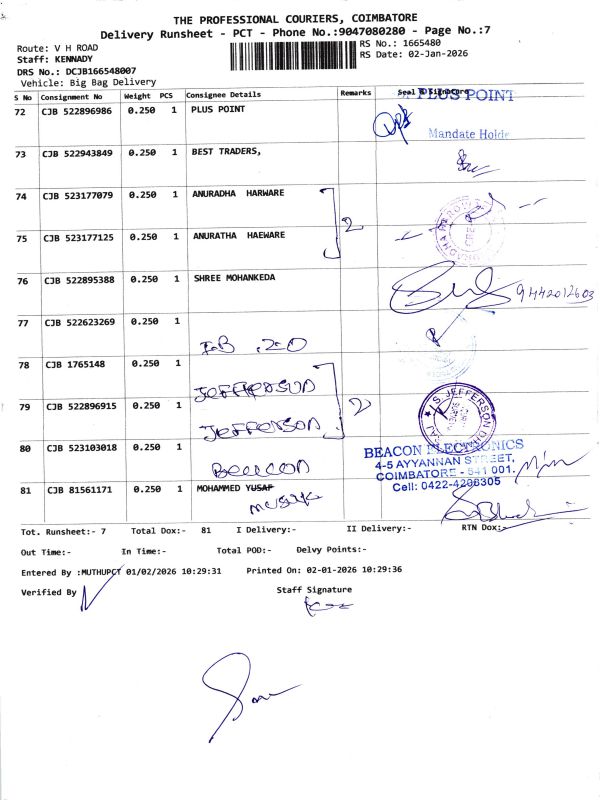 THE PROFESSIONAL COURIERS, COIMBATORE
Delivery Runsheet - PCT - Phone No.:9047080280 - Page No.:7
Route: V H ROAD
Staff: KENNADY
DRS No.: DCJB166548007
Vehicle: Big Bag Delivery
RS No.: 1665480
RS Date: 02-Jan-2026
S No Consignment No Weight PCS Consignee Details Remarks Seal & Signature
72 CJB 522896986 0.250 1 PLUS POINT
PLUS POINT
Mandate Holde
73 CJB 522943849 0.250 1 BEST TRADERS,
74 CJB 523177079 0.250 1 ANURADHA HARWARE
2
75 CJB 523177125 0.250 1 ANURATHA HAEWARE
76 CJB 522895388 0.250 1 SHREE MOHANKEDA
9442012603
77 CJB 522623269 0.250 1
78 CJB 1765148 0.250 1 JEFFERSON
2
79 CJB 522896915 0.250 1 JEFFERSON
80 CJB 523103018 0.250 1 BEACON
BEACON ELECTRONICS
4-5 AYYANNAN STREET,
COIMBATORE - 641 001.
Cell: 0422-4206305
81 CJB 81561171 0.250 1 MOHAMMED YUSAF
Tot. Runsheet:- 7 Total Dox:- 81 I Delivery:- II Delivery:- RTN Dox:-
Out Time:- In Time:- Total POD:- Delvy Points:-
Entered By :MUTHUPCT 01/02/2026 10:29:31 Printed On: 02-01-2026 10:29:36
Verified By Staff Signature